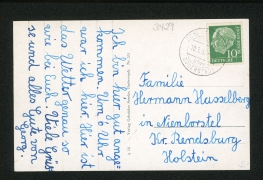 3429
Ich bin hier gut ange-
kommen. Um 6 Uhr
war ich hier. Hier ist
das Wetter genau so
wie bei Euch. Viele Grüs-
se und alles Gute von
Georg.
10
Familie
Hermann Husselberg
in Nienborstel
Kr. Rendsburg
Holstein